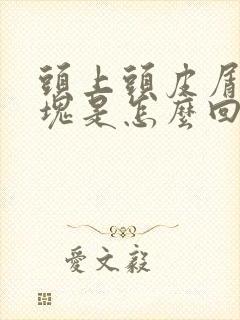 頭上頭皮屑
塊是怎麼回
愛文毅